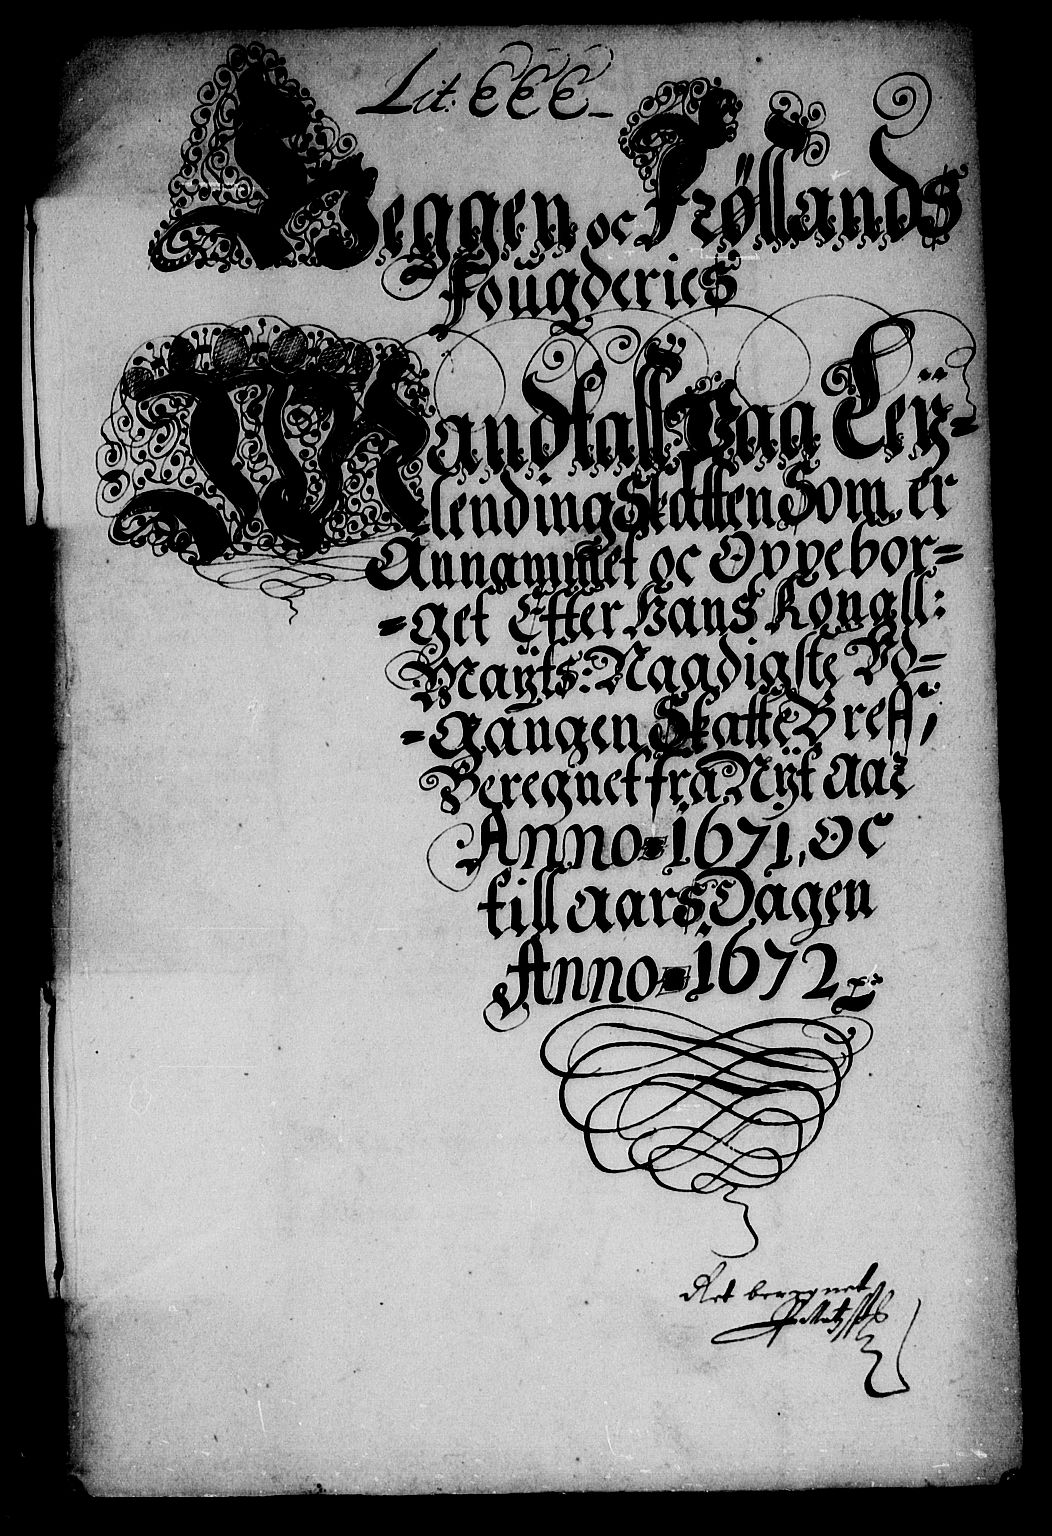 Lit. EEE
Heggen oc Frøllands
Fougderies
Mandtall Paa Leÿ=
lending Skatten Som er
Annammet oc Oppebor=
=get Efter Hans Kongll:
Maÿts: Naadigste Vd=
=gangen Skatte Breff,
Beregnet fra Nÿt Aar
Anno 1671, oc
till Aars Dagen
Anno 1672
Ret beregnet